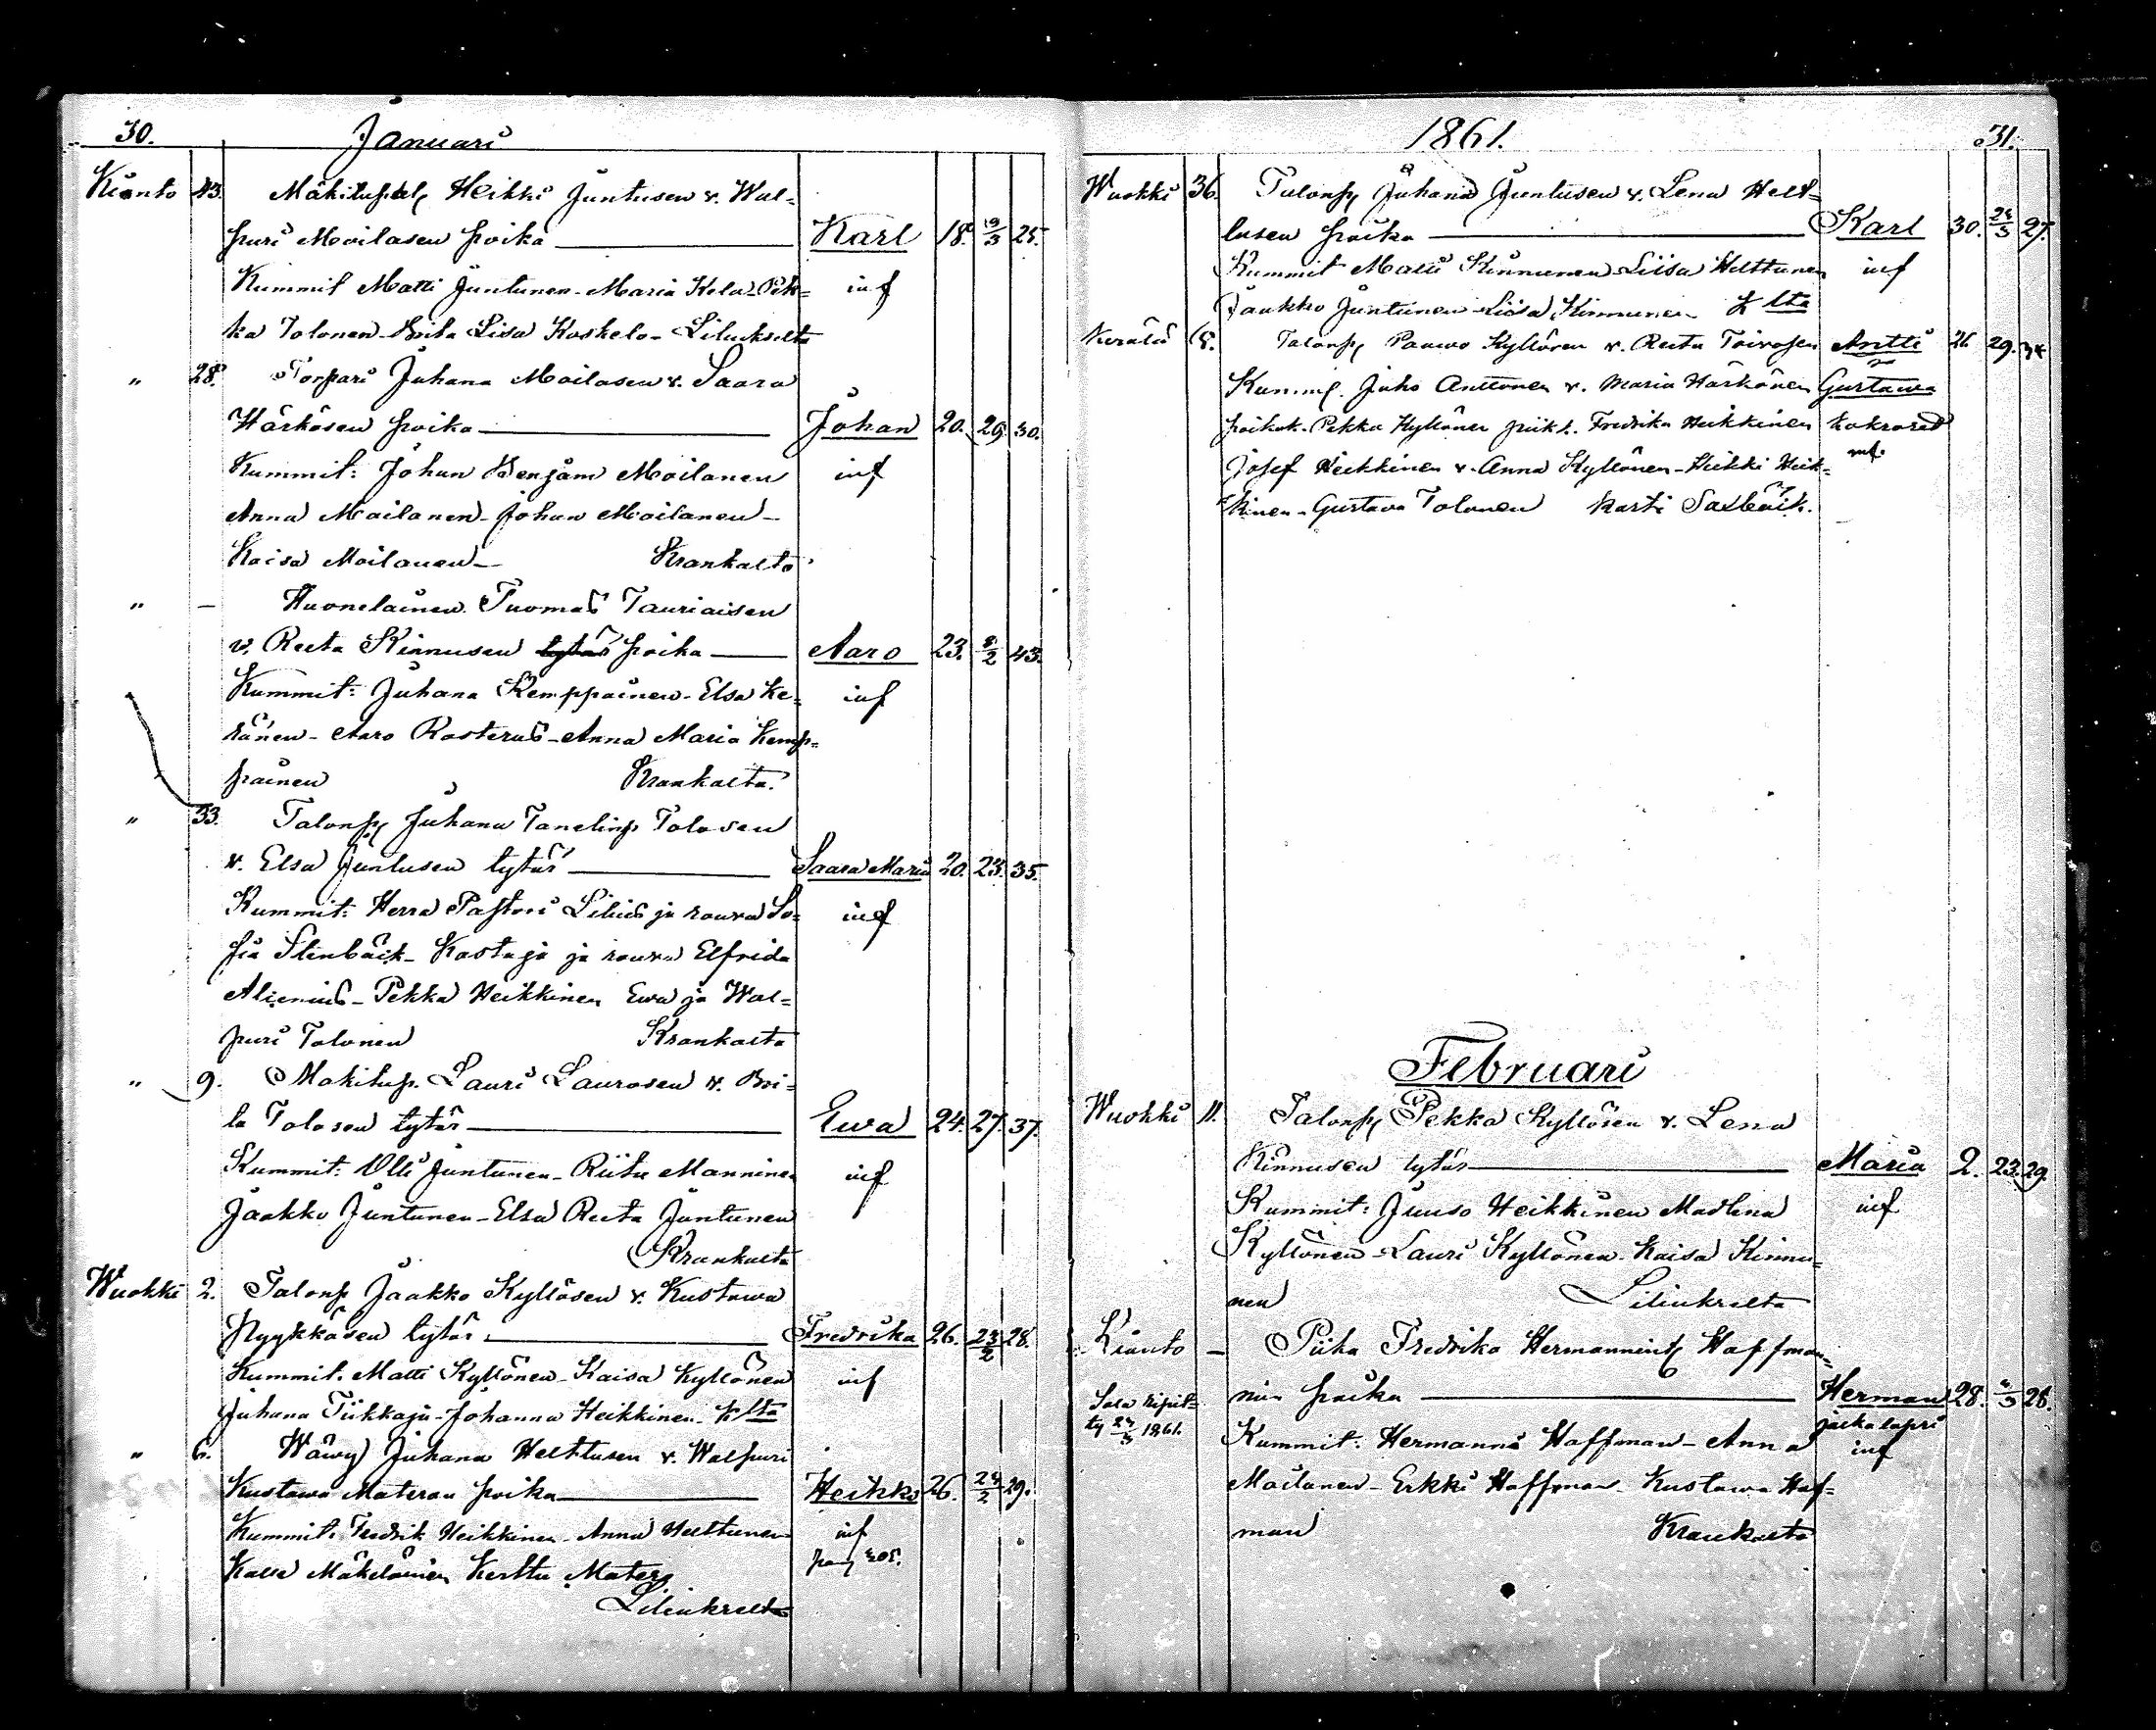 30. Januari
Kianto 43. Mäkitupal Heikki Juntusen v. Wal-
puri Moilasen poika Karl 18. 10/3 25.
Kummit Matti Juntunen - Maria Kela - Pek- inf
ka Tolonen - Brita Liisa Koskelo - Liliukselta
" 28. Torpari Juhana Moilasen v. Saara
Härkösen poika Johan 20. 29. 30.
Kummit: Johan Benjam Moilanen inf
Anna Moilanen - Johan Moilanen -
Kaisa Moilanen - Krankalta
" - Huonelainen Tuomas Tauriaisen
v. Reeta Kinnusen tytär poika Aaro 23. 8/2 43.
Kummit: Juhana Kemppainen - Elsa Ke- inf
ränen - Aaro Rosterus - Anna Maria Kemp-
painen Krankalta.
" 33. Talonp Juhana Tanelinp Tolosen
v. Elsa Juntusen tytär Saara Maria 20. 23. 35.
Kummit: Herra Pastori Lilius ja rouva So- inf
fia Stenbäck - Kastaja ja rouva Elfrida
Alcenius - Pekka Heikkinen Ewa ja Wal-
puri Tolonen Krankalta
" 9. Mäkitup. Lauri Laurosen v. Bri-
ta Tolosen tytär Ewa 24. 27. 37.
Kummit: Olli Juntunen - Riitu Manninen inf
Jaakko Juntunen - Elsa Reeta Juntunen
Krankalta
Wuokki 2. Talonp Jaakko Kyllösen v. Kustawa
Nyykkäsen tytär Fredrika 26. 23/2 28.
Kummit. Matti Kyllönen - Kaisa Kyllönen inf
Juhana Tiikkaja - Johanna Heikkinen - K lta
" 6. Wäwy Juhana Helttusen v. Walpuri
Kustawa Materon poika Heikki 26. 24/2 29.
Kummit. Fredrik Heikkinen - Anna Helttunen inf
Kalle Mäkeläinen Kerttu Matero pag 205.
Liliukselta
1861. 31.
Wuokki 36. Talonp Juhana Juntusen v. Lena Helt-
tusen poika Karl 30. 24/3 27.
Kummit Matti Kinnunen Liisa Helttunen inf
Jaakko Juntunen Liisa Kinnunen K lta
Kerälä 18. Talonp Paawo Kyllönen v. Reeta Toivosen Antti 26. 29. 34
Kummit. Juho Anttonen v. Maria Härkönen Gustawa
poikak. Pekka Kyllönen piika. Fredrika Heikkinen kakroset
Josef Heikkinen v. Anna Kyllönen - Heikki Heik- inf.
kinen - Gustava Tolonen Kasti Saxbäck.
Februari
Wuokki 11. Talonp Pekka Kyllösen v. Lena
Kinnusen tytär Maria 2. 23. 29.
Kummit: Juuso Heikkinen Madlena inf
Kyllönen - Lauri Kyllönen - Kaisa Kinnu-
nen Liliukselta
Kianto - Piika Fredrika Hermannint Haffman-
nin poika Herman 28. 4/3 28.
Sala ripit- jalkalapsi
ty 24/3 1861. Kummit: Hermanni Haffman - Anna inf
Moilanen - Erkki Haffman Kustawa Haf-
man Krankalta